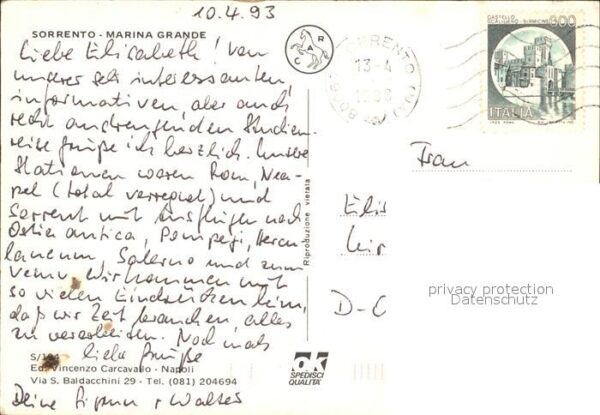 10.4.93
SORRENTO - MARINA GRANDE
Liebe Elisabeth! Von
unserer sehr interessanten,
informativen, aber auch
recht anstrengenden Studien-
reise grüße ich herzlich. Unsere
Stationen waren Rom, Nea-
pel (total verregnet) und
Sorrent mit Ausflügen nach
Ostia antica, Pompeji, Hercu
laneum, Salerno und zum
Vesuv. Wir kommen mit
so vielen Eindrücken heim,
daß wir Zeit brauchen, alles
zu verarbeiten. Noch mals
liebe Grüße
Deine
Walter
S/104
Ed. Vincenzo Carcavallo - Napoli
Via S. Baldacchini 29 - Tel. (081) 204694
Riproduzione vietata
CAR
OK
SPEDISCI
QUALITA'
SORRENTO
13-4
CASTELLO
SCALIGERO - SIRMIONE
600
ITALIA
Frau
Elis
D-
privacy protection
Datenschutz